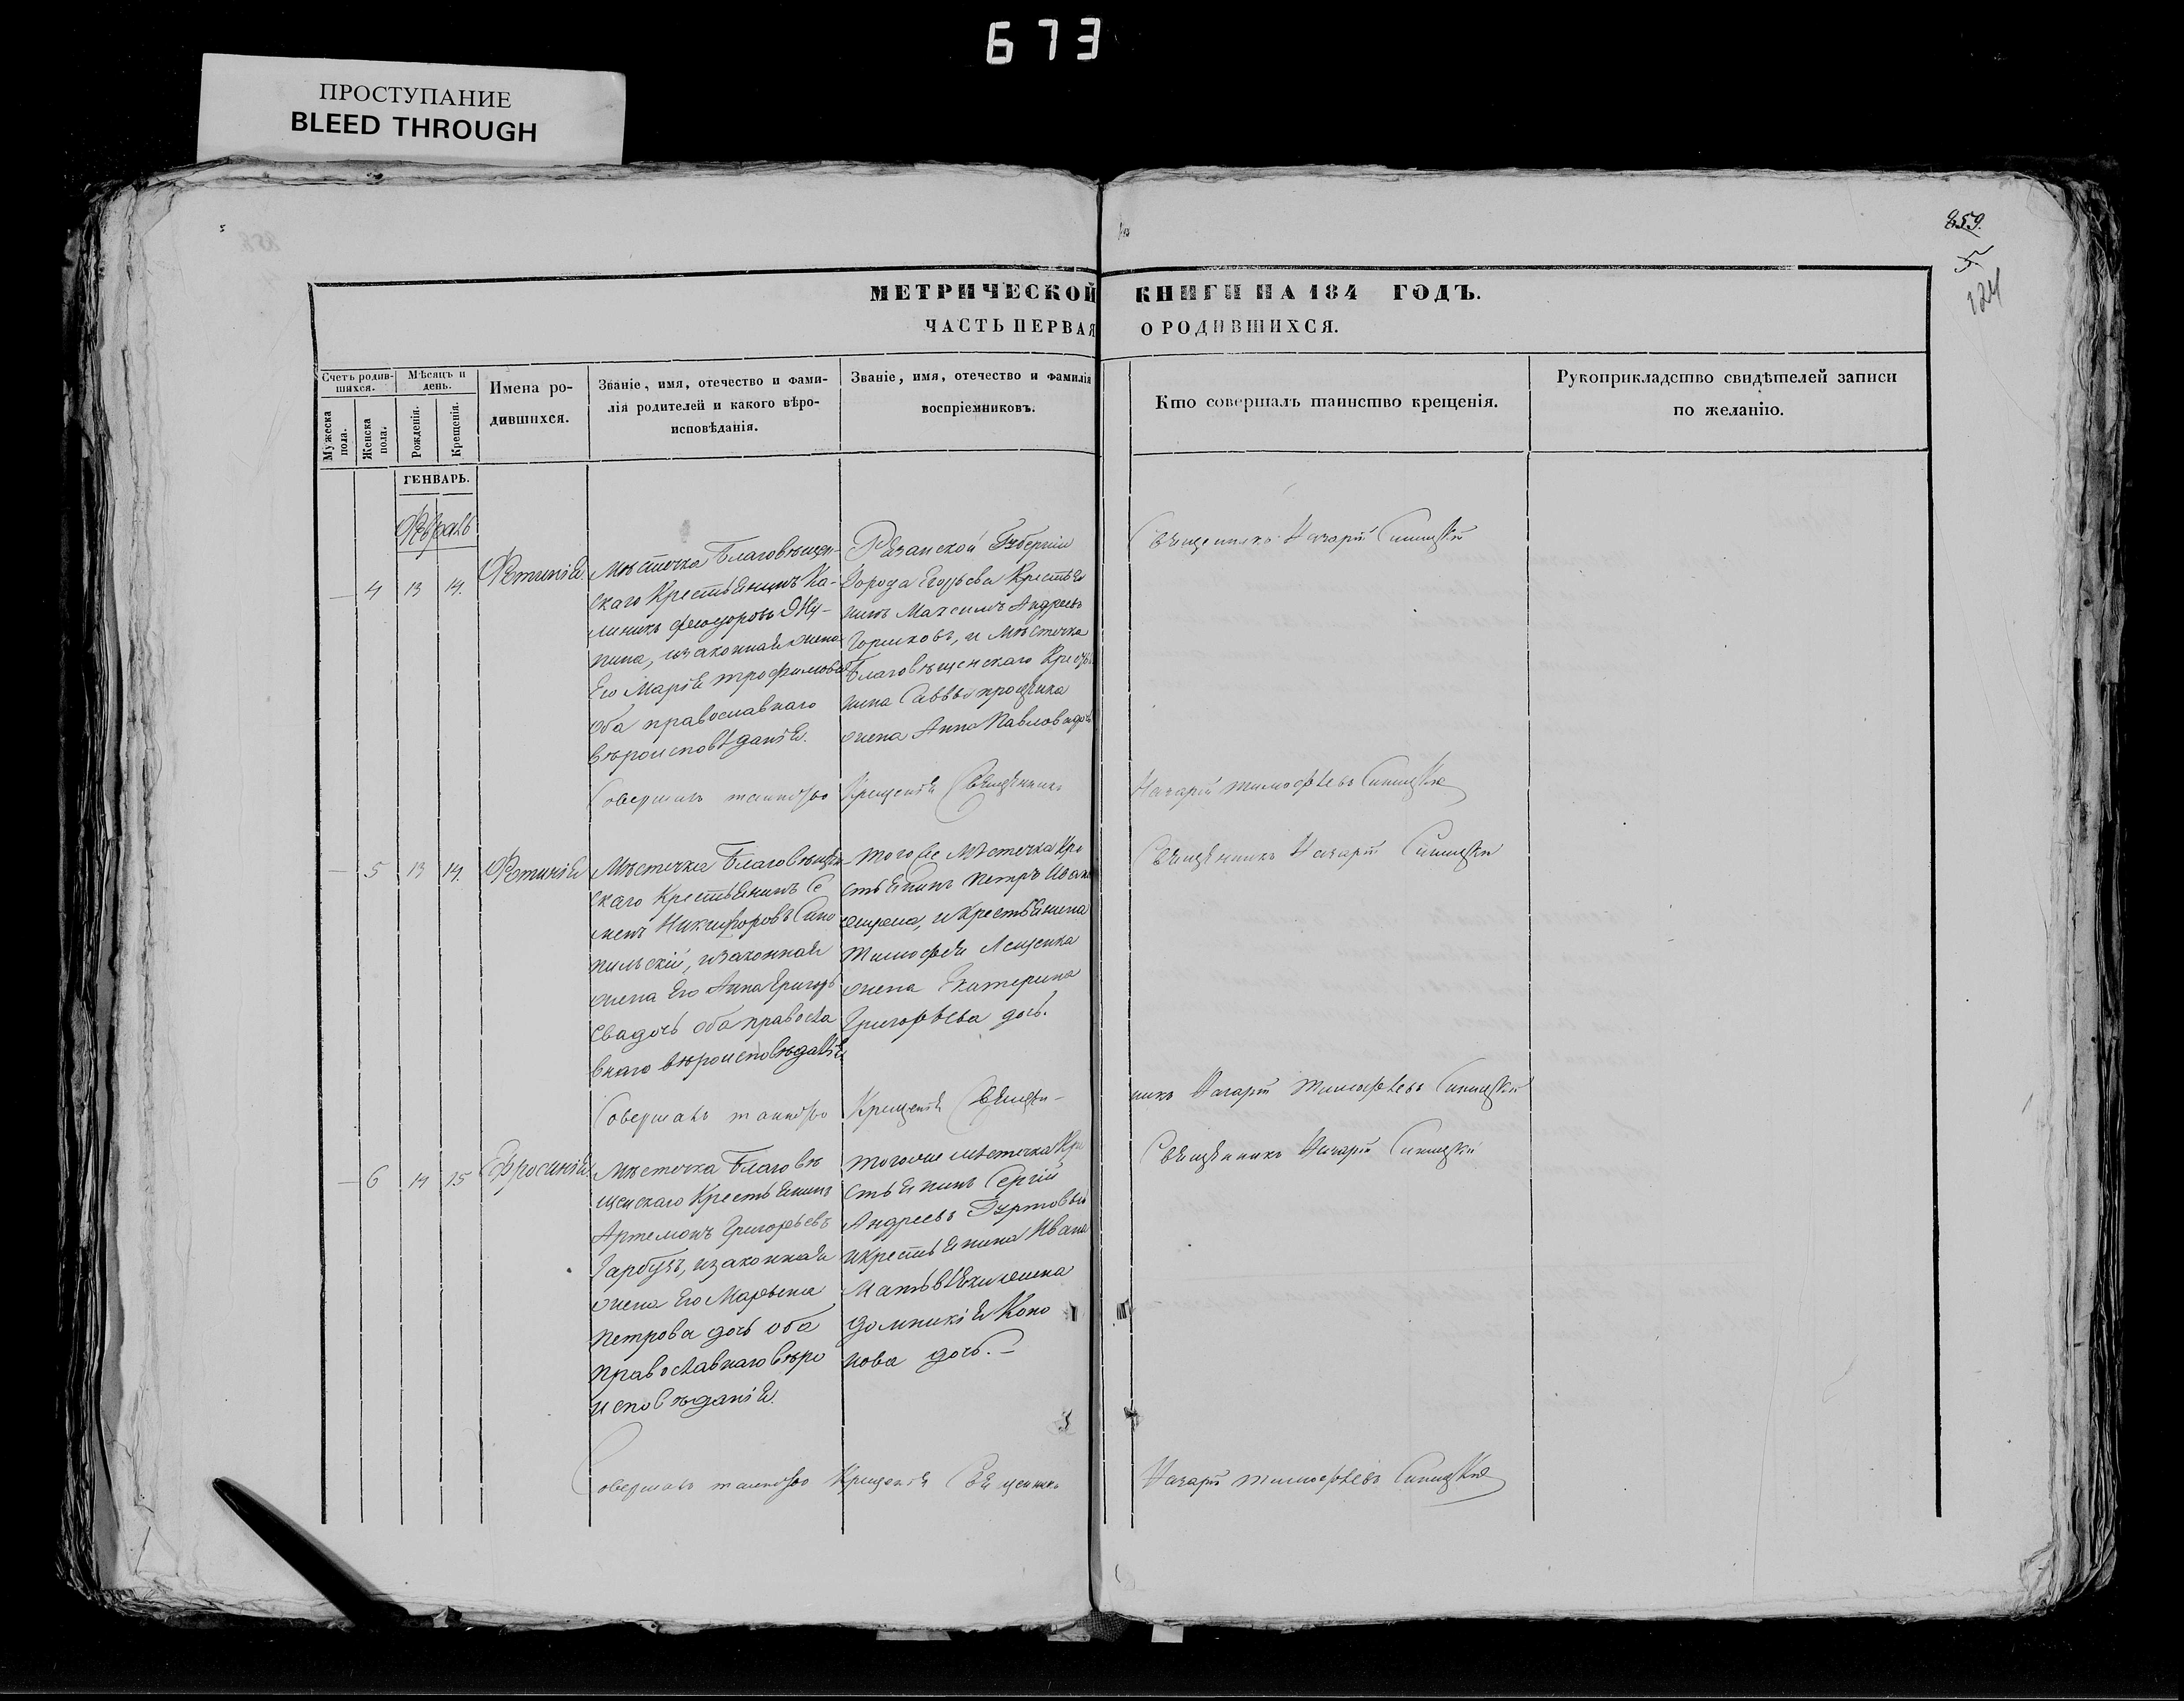 673
ПРОСТУПАНИЕ
BLEED THROUGH
859.
5
124
МЕТРИЧЕСКОЙ КНИГИ НА 184 ГОДЪ.
ЧАСТЬ ПЕРВАЯ О РОДИВШИХСЯ.
Счетъ родив-
шихся.
Мужеска
пола.
Женска
пола.
Мѣсяцъ и
день.
Рожденія.
Крещенія.
Имена ро-
дившихся.
Званіе, имя, отечество и фами-
лія родителей и какого вѣро-
исповѣданія.
Званіе, имя, отечество и фамилія
воспріемниковъ.
Кто совершалъ таинство крещенія.
Рукоприкладство свидѣтелей записи
по желанію.
ГЕНВАРЬ.
Февраль
— 4 13 14. Фотинія
Мѣстечка Благовѣщен-
скаго Крестьянинъ Ка-
линикъ Феодоровъ
изаконная жена
Его Марія трофимова
оба православнаго
вѣроисповѣданія.
Рязанской Губерніи
Города Егорьева Крестья
нинъ Максимъ Андреевъ
Горшковъ, и Мѣстечка
Благовѣщенскаго Кресть
нина Саввы
жена Анна Павлова дочь
Священникъ Назарій Синицкій
Совершалъ таинство Крещенія Священникъ Назарій тимофѣевъ Синицкій
— 5 13 14. Фотинія
Мѣстечка Благовѣщен
скаго Крестьянинъ Се
менъ Никифоровъ Сино
пильскій, изаконная
жена Его Анна Григорь
ева дочь оба правосла
внаго вѣроисповѣданія
того же Мѣстечка Кре
стьянинъ Петръ
и крестьянина
Тимофея Лещенка
жена Екатерина
Григорьева дочь.
Священникъ Назарій Синицкій
Совершалъ таинство Крещенія Священ-
никъ Назарій Тимофѣевъ Синицкій
— 6 14 15 Ефросинія
Мѣстечка Благовѣ
щенскаго Крестьянинъ
Артемонъ Григорьевъ
Гарбузъ, изаконная
жена Его Марфена
Петрова дочь оба
православнаго вѣро
исповѣданія.
тогоже мѣстечка Кре
стьянинъ Сергій
Андреевъ Гуртовый
икрестьянина Ивана
жена
домникія Коно
нова дочь. —
Священникъ Назарій Синицкій
Совершалъ таинство Крещенія Священникъ Назарій тимофѣевъ Синицкій